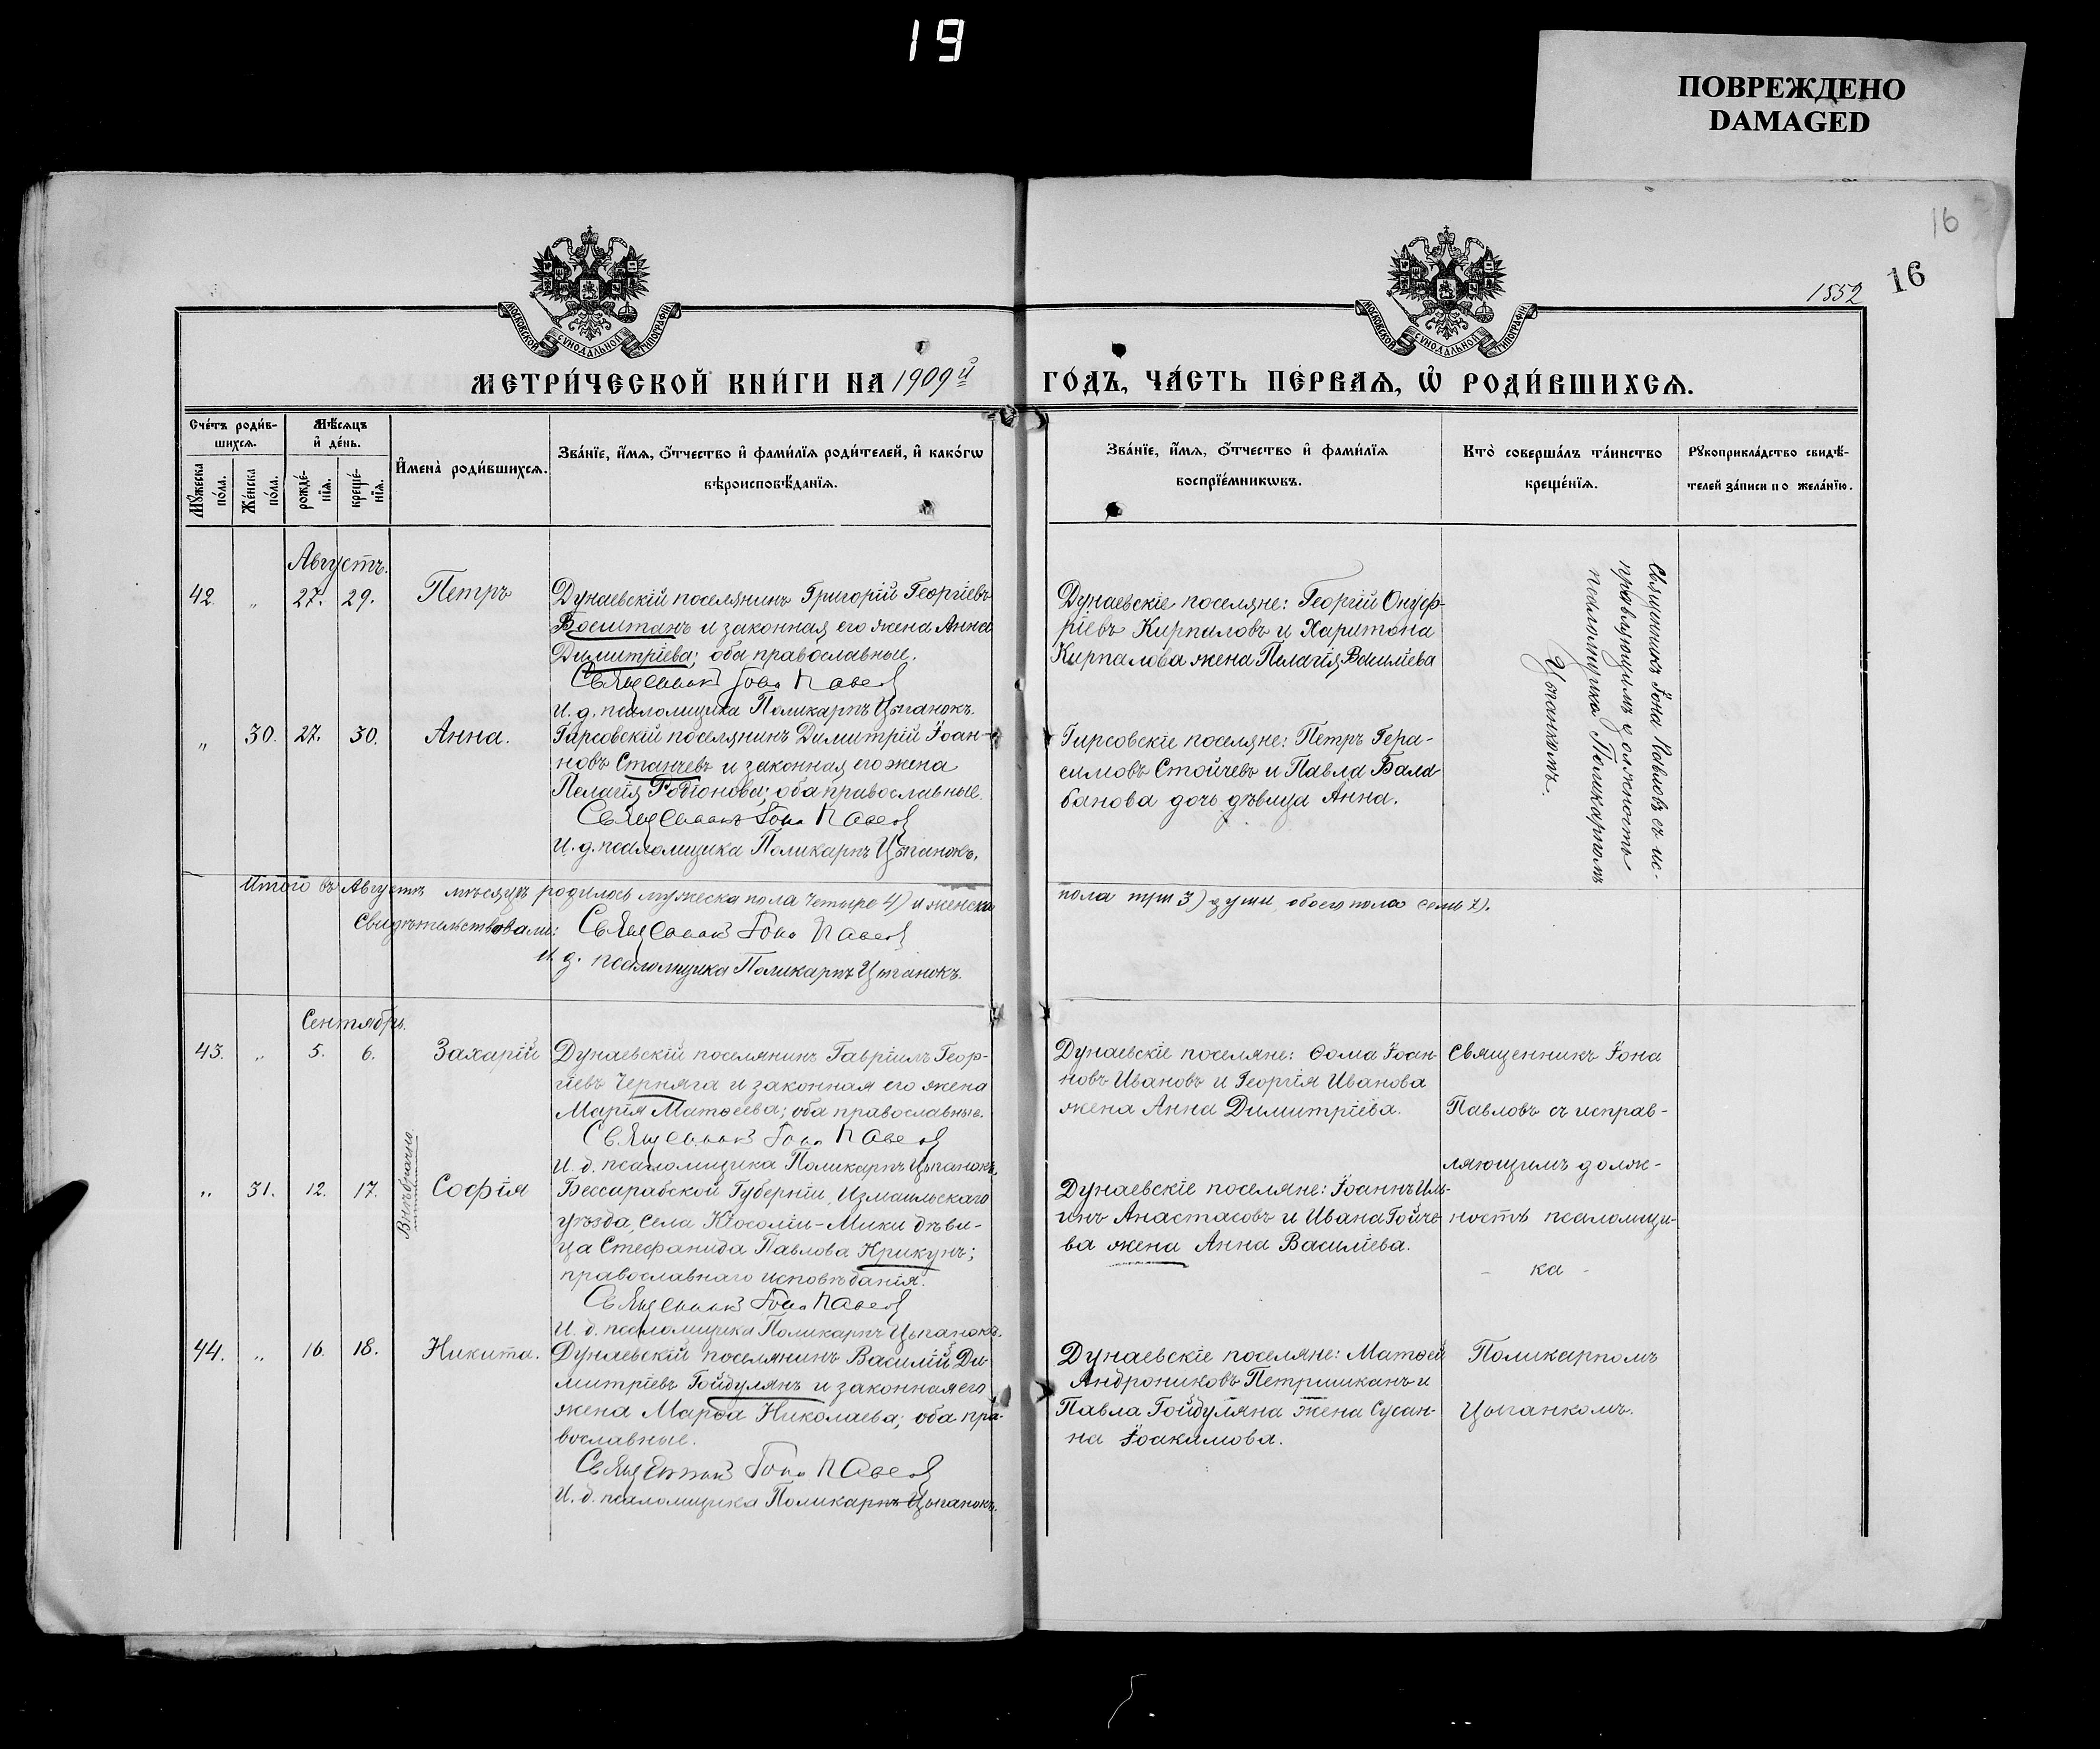 19
ПОВРЕЖДЕНО
DAMAGED
16
16
1552
МОСКОВСКОЙ СѴНОДАЛЬНОЙ ТИПОГРАФІИ
МОСКОВСКОЙ СѴНОДАЛЬНОЙ ТИПОГРАФІИ
МЕТРИ́ЧЕСКОЙ КНИ́ГИ НА 1909й
ГО́ДЪ, ЧА́СТЬ ПЕ́РВАѦ, Ѡ҆ РОДИ́ВШИХСѦ.
Сче́тъ роди́в-
шихсѧ.
Мꙋ́жеска по́ла.
Же́нска по́ла.
Мѣ́сѧцъ
и҆ де́нь.
рожде́-
нїѧ.
креще́-
нїѧ.
И҆мена̀ роди́вшихсѧ.
Зва́нїе, и҆́мѧ, ѻ҆́тчество и҆ фами́лїѧ роди́телей, и҆ како́гѡ
вѣроисповѣ́данїѧ.
Зва́нїе, и҆́мѧ, ѻ҆́тчество и҆ фами́лїѧ
воспрїе́мникѡвъ.
Кто̀ соверша́лъ та́инство
креще́нїѧ.
Рꙋкоприкла́дство свидѣ́-
телей за́писи по жела́нїю.
Августъ.
42. „ 27. 29. Петръ
Дунаевскій поселянинъ Григорій Георгіевъ
Воештанъ и законная его жена Анна
Димитріева; оба православные.
Священникъ Іона Павлов
И. д. псаломщика Поликарпъ Цыганокъ.
Дунаевскіе поселяне: Георгій Онуф-
ріевъ Кирпаловъ и Харитона
Кирпалова жена Пелагія Василіева
Священникъ Іона Павловъ съ ис-
правляющимъ должность
псаломщика Поликарпомъ
Цыганкомъ.
„ 30. 27. 30. Анна.
Гирсовскій поселянинъ Димитрій Іоан-
новъ Станчевъ и законная его жена
Пелагія Родіонова; оба православные.
Священникъ Іона Павлов
И. д. псаломщика Поликарпъ Цыганокъ.
Гирсовскіе поселяне: Петръ Гера-
симовъ Стойчевъ и Павла Бала-
банова дочь дѣвица Анна.
Итого въ Августѣ мѣсяцѣ родилось мужеска пола четыре 4) и женска
пола три 3) души, обоего пола семь 7).
Свидѣтельствовали: Священникъ Іона Павлов
И. д. псаломщика Поликарпъ Цыганокъ.
Сентябрь.
43. „ 5. 6. Захарій
Дунаевскій поселянинъ Гавріилъ Геор-
гіевъ Черняга и законная его жена
Марія Матѳеева; оба православные.
Священникъ Іона Павлов
И. д. псаломщика Поликарпъ Цыганокъ.
Дунаевскіе поселяне: Ѳома Іоан-
новъ Ивановъ и Георгія Иванова
жена Анна Димитріева.
Священникъ Іона
Павловъ съ исправ-
ляющимъ долж-
ность псаломщи-
- ка -
Поликарпомъ
Цыганкомъ.
Внѣбрачно
„ 31. 12. 17. Софія
Бессарабской Губерніи, Измаильскаго
уѣзда, села Кіосоліи-Мики дѣви-
ца Стефанида Павлова Крикунъ;
православнаго исповѣданія.
Священникъ Іона Павлов
И. д. псаломщика Поликарпъ Цыганокъ.
Дунаевскіе поселяне: Іоаннъ Иль-
инъ Анастасовъ и Ивана Гойче-
ва жена Анна Василіева.
44. „ 16. 18. Никита.
Дунаевскій поселянинъ Василій Ди-
митріевъ Гойдулянъ и законная его
жена Марѳа Николаева; оба пра-
вославные.
Священникъ Іона Павлов
И. д. псаломщика Поликарпъ Цыганокъ.
Дунаевскіе поселяне: Матѳей
Андрониковъ Петришканъ и
Павла Гойдуляна жена Сусан-
на Іоакимова.